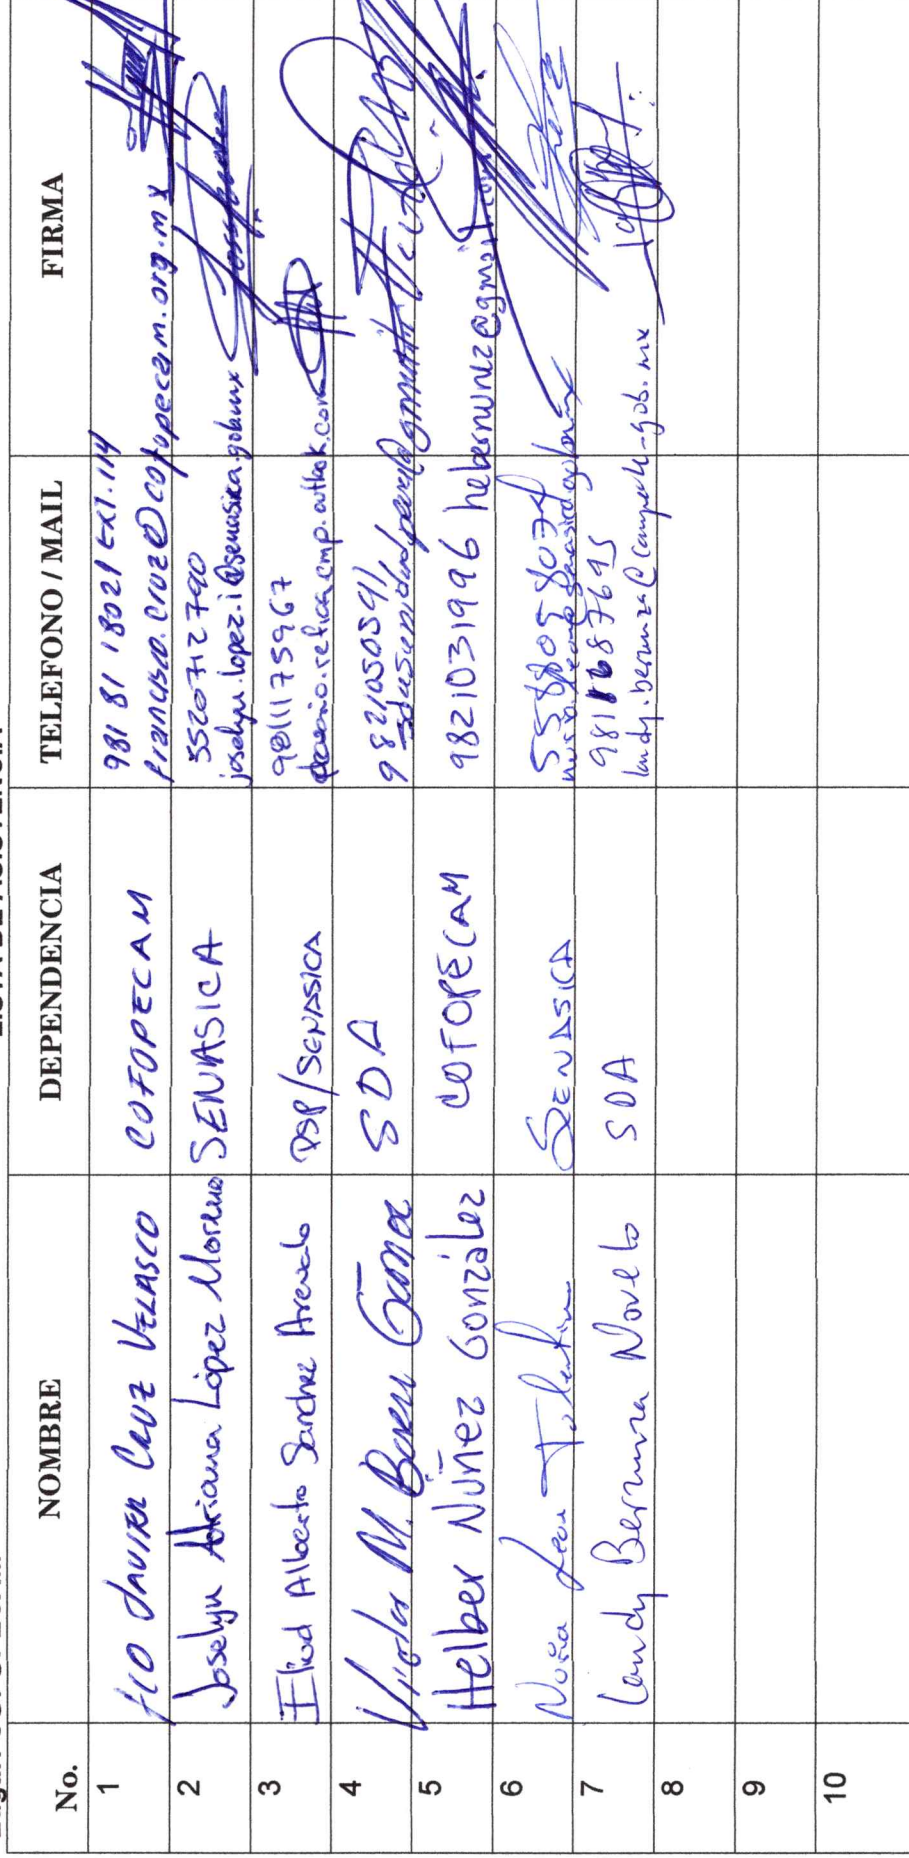 No. NOMBRE DEPENDENCIA TELEFONO / MAIL FIRMA
1 FCO JAVIER CRUZ VELASCO COFOPECAM 981 81 18021 EXT. 114
francisco.cruz@cofopecam.org.mx
2 Joselyn Adriana López Moreno SENASICA 5520712790
joselyn.lopez.i@senasica.gob.mx
3 Eliud Alberto Sanchez Arevalo DSP/SENASICA 9811175967
4 Victor M. Gómez SDA 9821050591
5 Helber Núñez González COFOPECAM 9821031996 hebernunez@gmail.com
6 SENASICA
7 Landy Berzunza Novelo SDA 9811687695
landy.berzunza@campeche.gob.mx
8
9
10